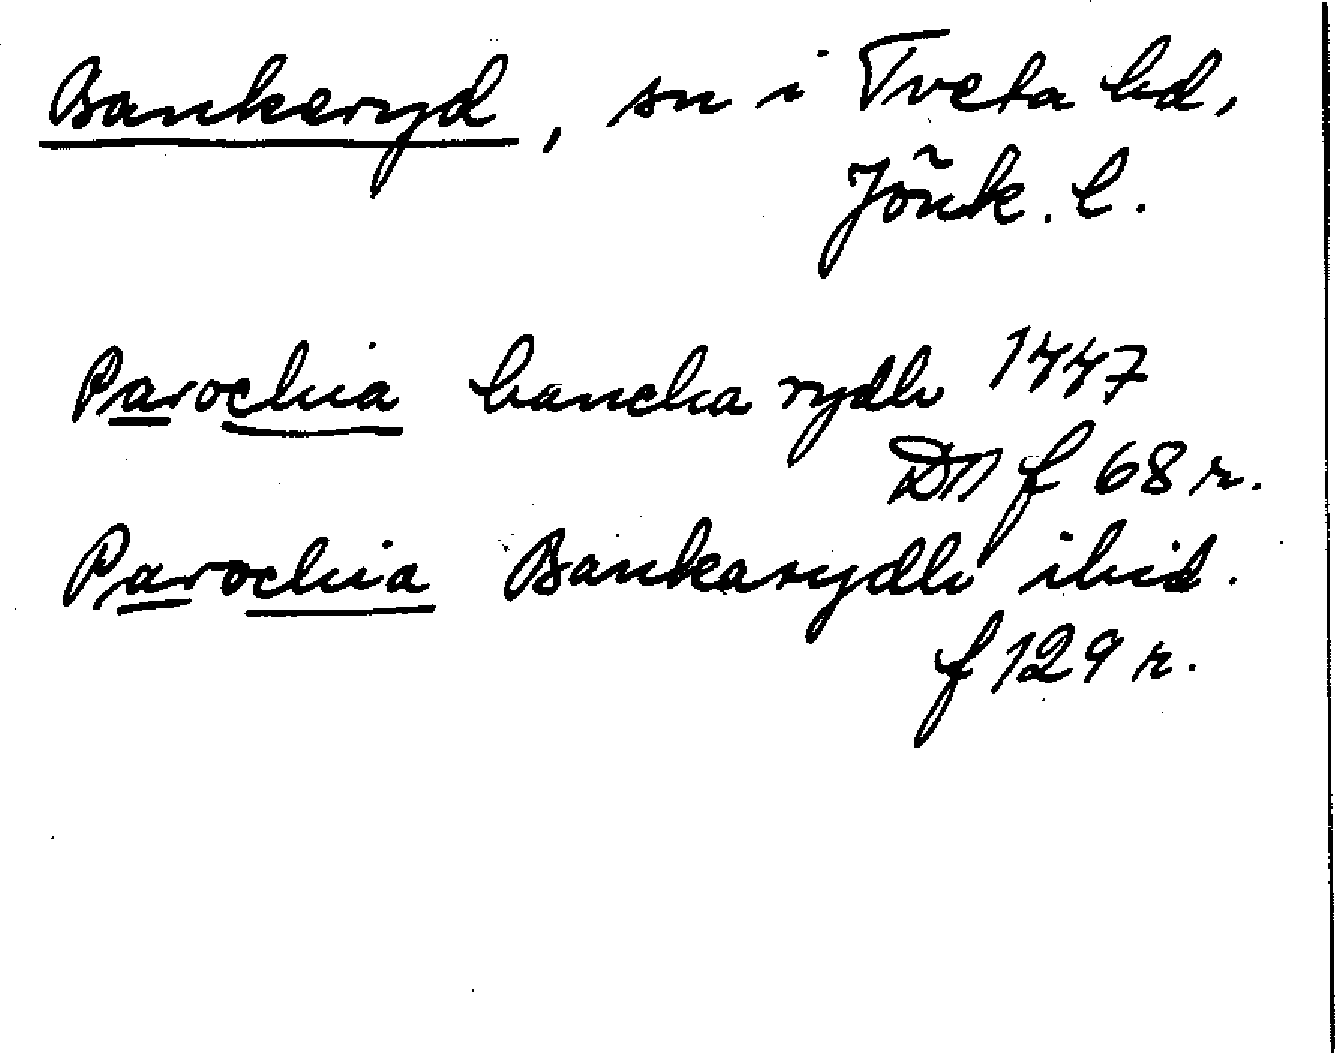 Bankeryd, sn i Tveta hd,
Jönk. l.
Parochia bancka rydh 1447
Dn f 68 r.
Parochia Bankarydh ibid.
f 129 r.